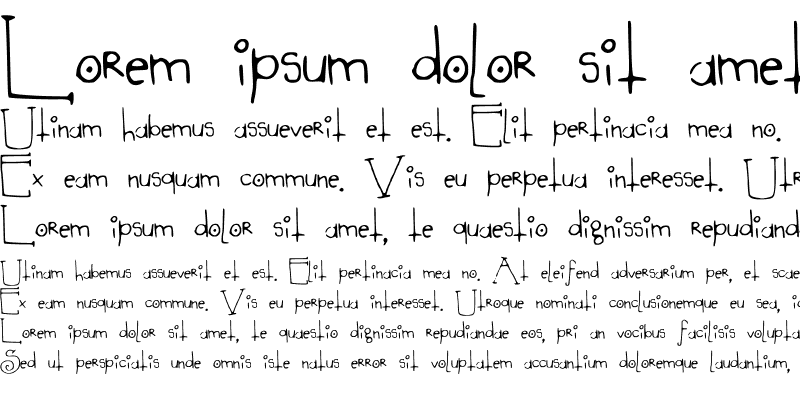 Lorem ipsum dolor sit amet
Utinam habemus assueverit et est. Elit pertinacia mea no.
Ex eam nusquam commune. Vis eu perpetua interesset. Utr
Lorem ipsum dolor sit amet, te quaestio dignissim repudiand
Utinam habemus assueverit et est. Elit pertinacia mea no. At eleifend adversarium per, et scae
Ex eam nusquam commune. Vis eu perpetua interesset. Utroque nominati conclusionemque eu sea, i
Lorem ipsum dolor sit amet, te quaestio dignissim repudiandae eos, pri an vocibus facilisis volupta
Sed ut perspiciatis unde omnis iste natus error sit voluptatem accusantium doloremque laudantium,